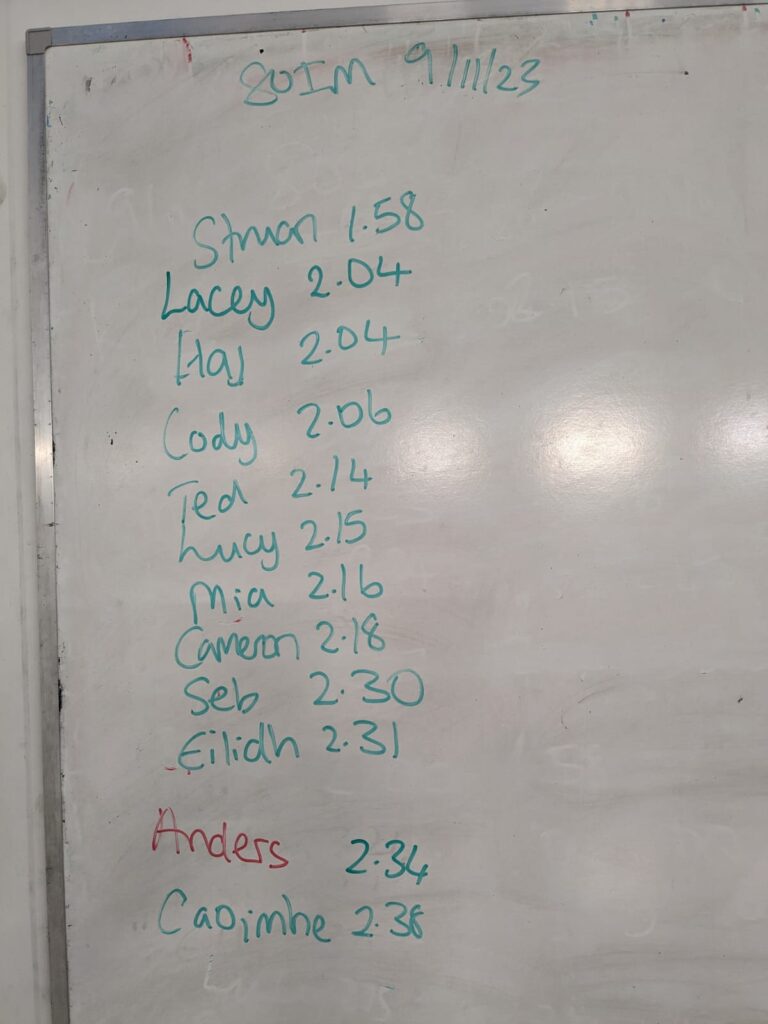 80IM 9/11/23
Struan 1.58
Lacey 2.04
Haj 2.04
Cody 2.06
Ted 2.14
Lucy 2.15
Mia 2.16
Cameron 2.18
Seb 2.30
Eilidh 2.31
Anders 2.34
Caoimhe 2.38